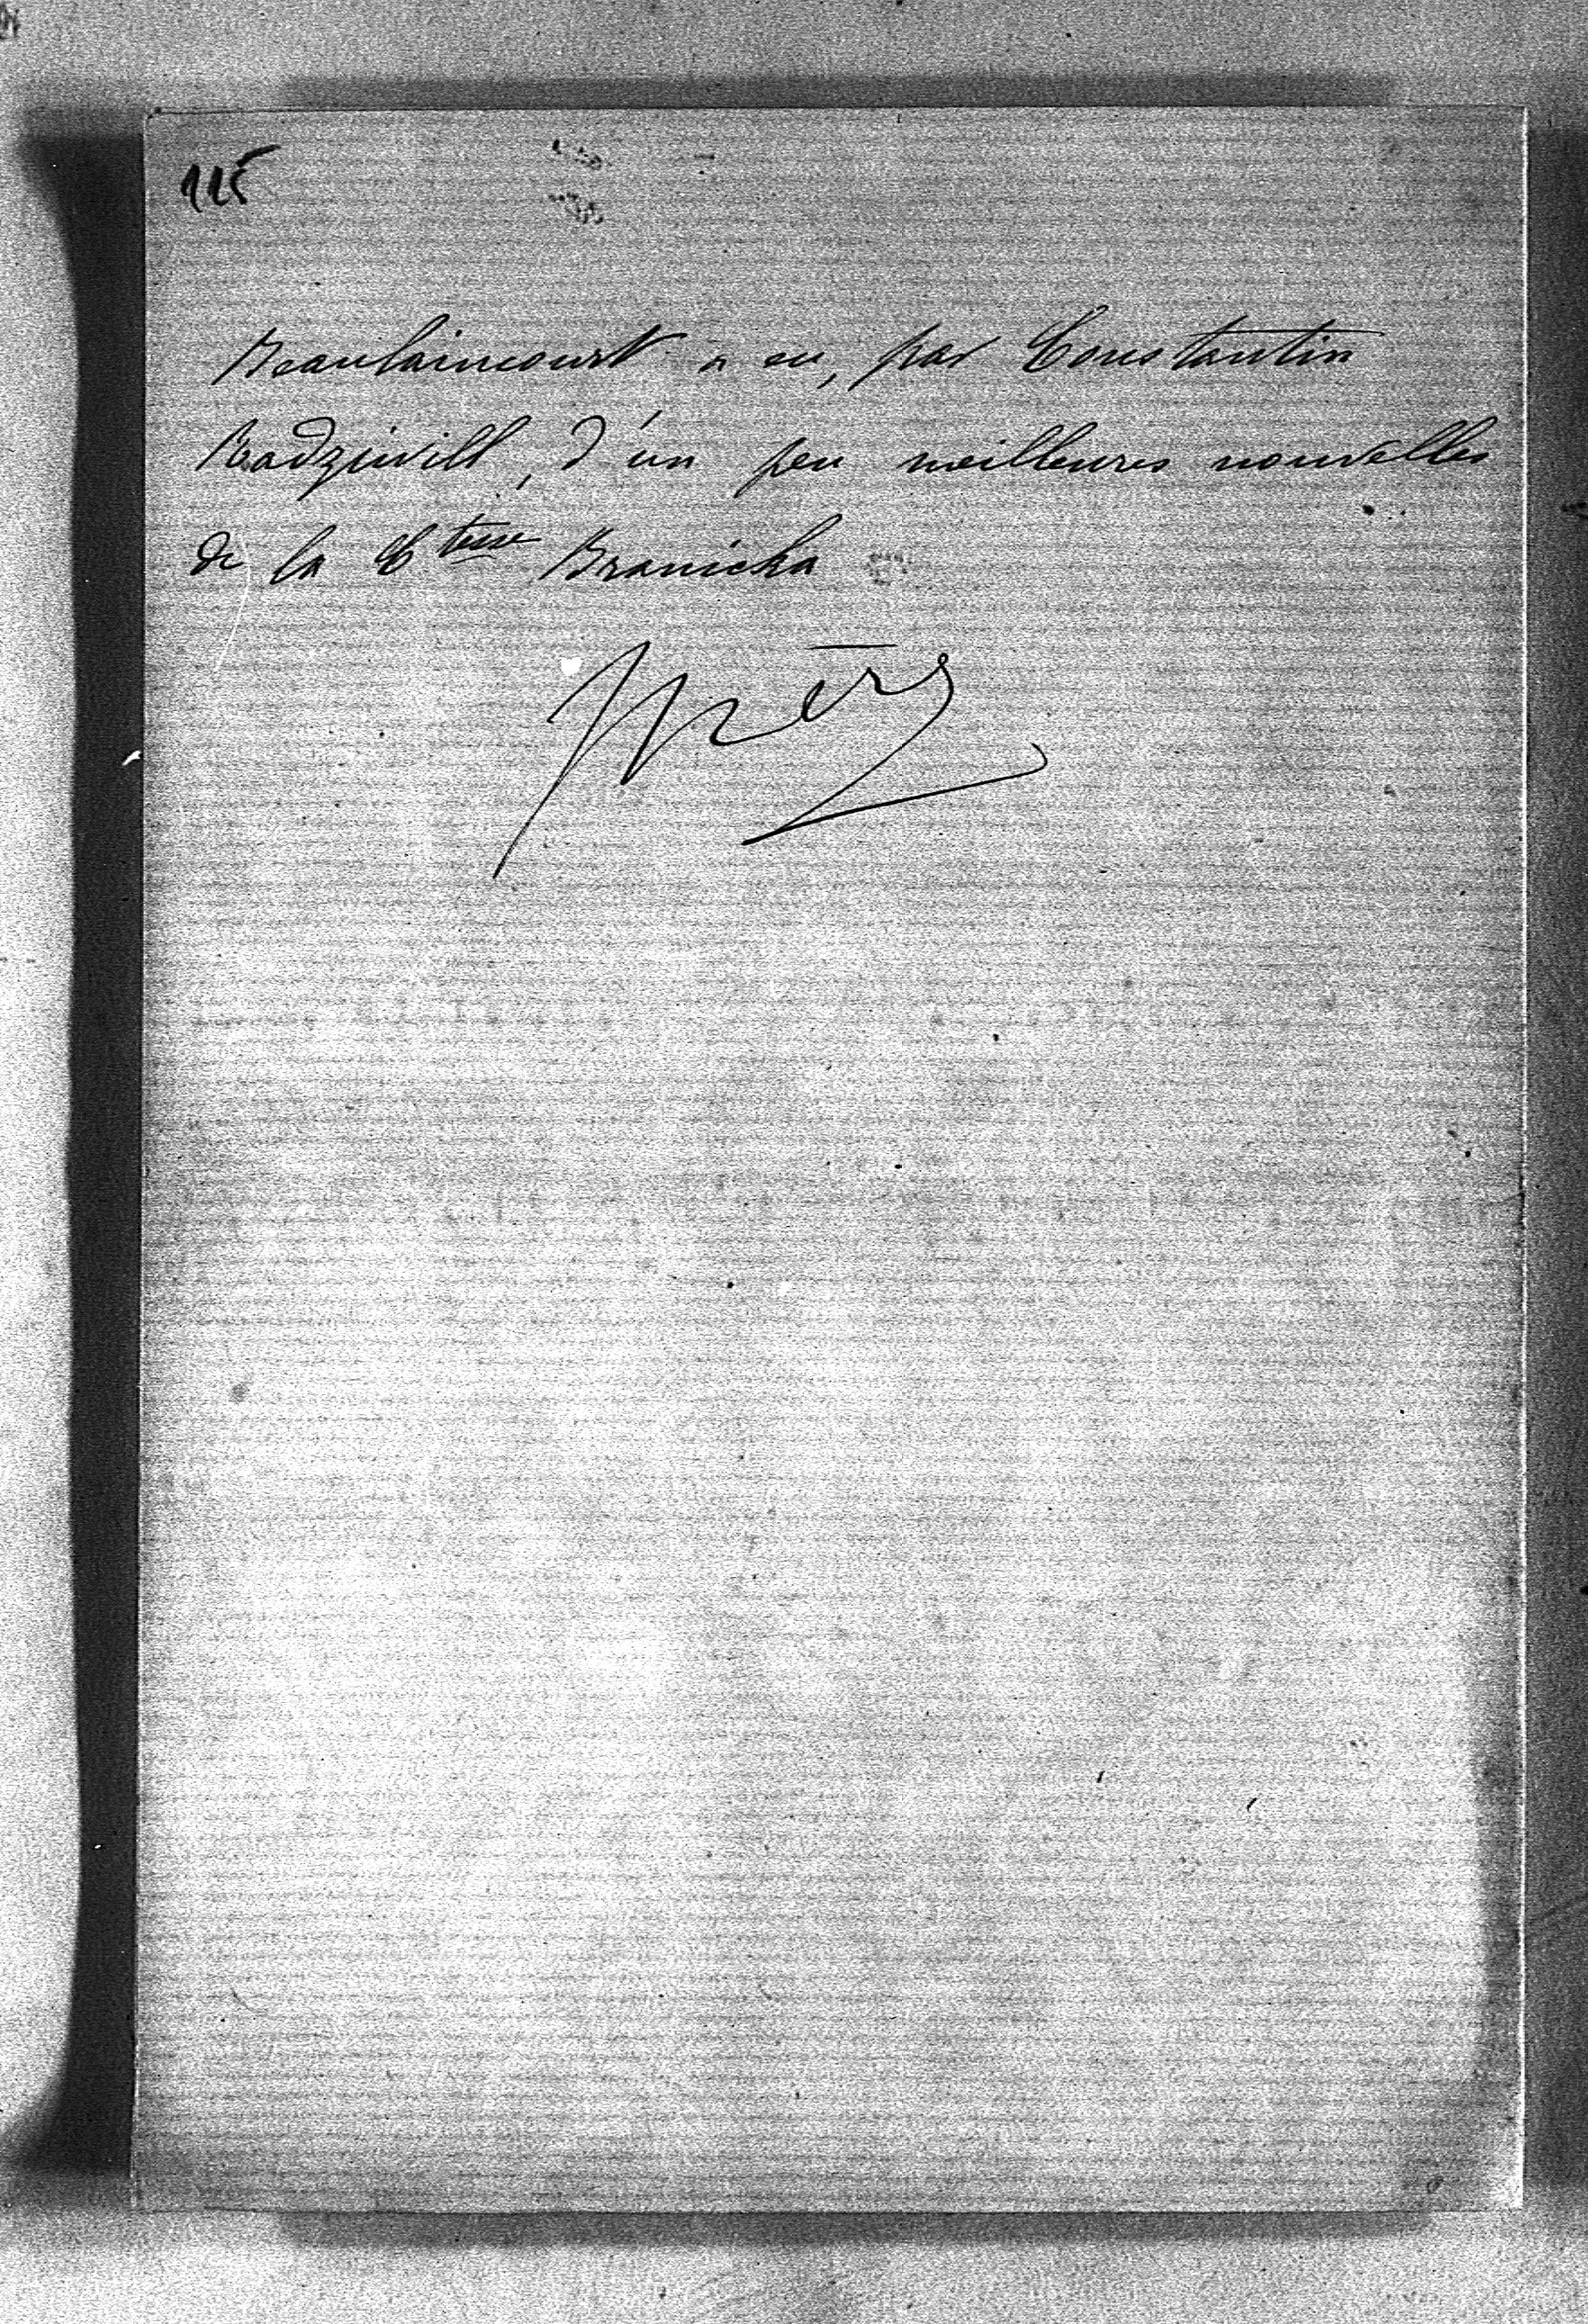 115
Beaulaincourt a eu, par Constantin
Radziwill, d'un peu meilleures nouvelles
de la Ctesse Branicka